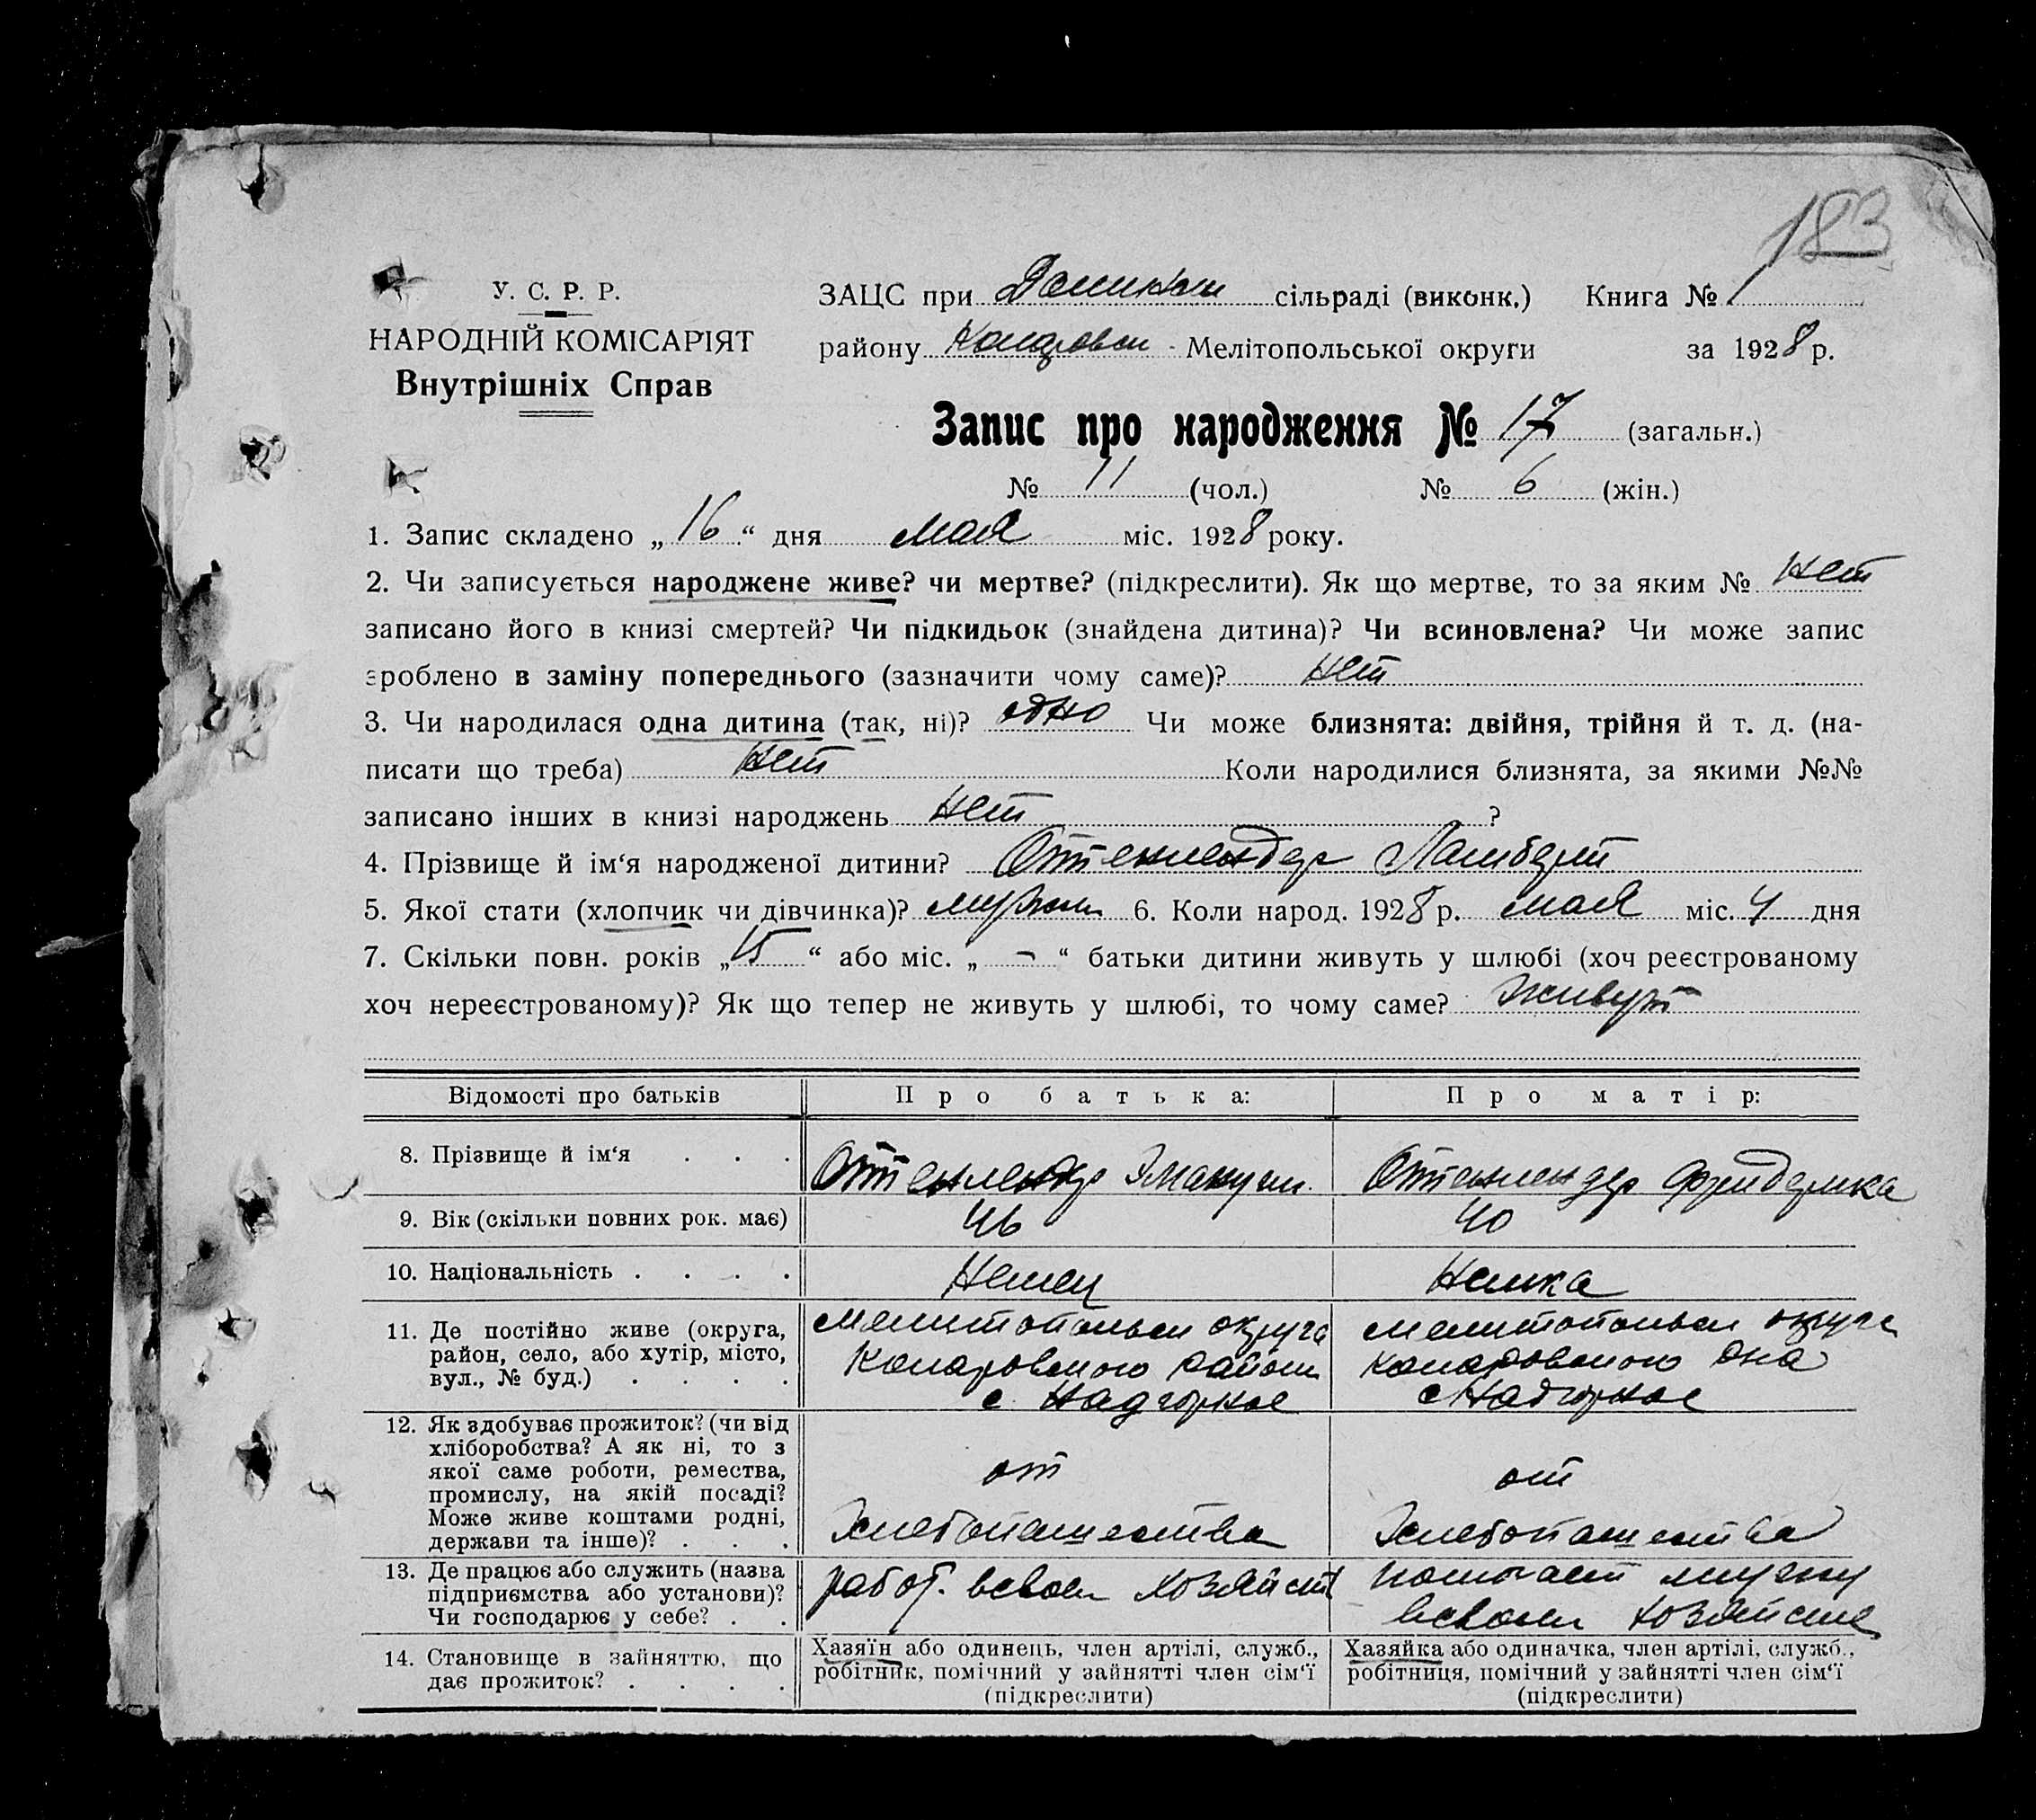 183
У. С. Р. Р.
НАРОДНІЙ КОМІСАРІЯТ
Внутрішніх Справ
ЗАЦС при сільраді (виконк.) Книга № 1
району Мелітопольської округи за 1928 р.
Запис про народження № 17 (загальн.)
№ 11 (чол.) № 6 (жін.)
1. Запис складено „16“ дня мая міс. 1928 року.
2. Чи записується народжене живе? чи мертве? (підкреслити). Як що мертве, то за яким № нет
записано його в книзі смертей? Чи підкидьок (знайдена дитина)? Чи всиновлена? Чи може запис
зроблено в заміну попереднього (зазначити чому саме)? нет
3. Чи народилася одна дитина (так, ні)? одно Чи може близнята: двійня, трійня й т. д. (на-
писати що треба) нет Коли народилися близнята, за якими №№
записано інших в книзі народжень нет ?
4. Прізвище й ім‘я народженої дитини? Оттенлендер Ламберт
5. Якої стати (хлопчик чи дівчинка)? 6. Коли народ. 1928 р. мая міс. 4 дня
7. Скільки повн. років „15“ або міс. „-“ батьки дитини живуть у шлюбі (хоч реєстрованому
хоч нереєстрованому)? Як що тепер не живуть у шлюбі, то чому саме? живут
Відомості про батьків Про батька: Про матір:
8. Прізвище й ім‘я . . . Оттенлендер Оттенлендер
9. Вік (скільки повних рок. має) 46 40
10. Національність . . . . Немец Немка
11. Де постійно живе (округа, округа
район, село, або хутір, місто, района
вул., № буд.) . . . . с. Надгорное с Надгорное
12. Як здобуває прожиток? (чи від
хліборобства? А як ні, то з
якої саме роботи, ремества, от от
промислу, на якій посаді?
Може живе коштами родні, Хлебопашества Хлебопашества
держави та інше)? . . .
13. Де працює або служить (назва работ. в своем хозяйст помогает мужу
підприємства або установи)? в своем хозяйстве
Чи господарює у себе? . .
14. Становище в зайняттю, що Хазяїн або одинець, член артілі, служб., Хазяйка або одиначка, член артілі, служб.,
дає прожиток? . . . . робітник, помічний у зайнятті член сім‘ї робітниця, помічний у зайнятті член сім‘ї
(підкреслити) (підкреслити)